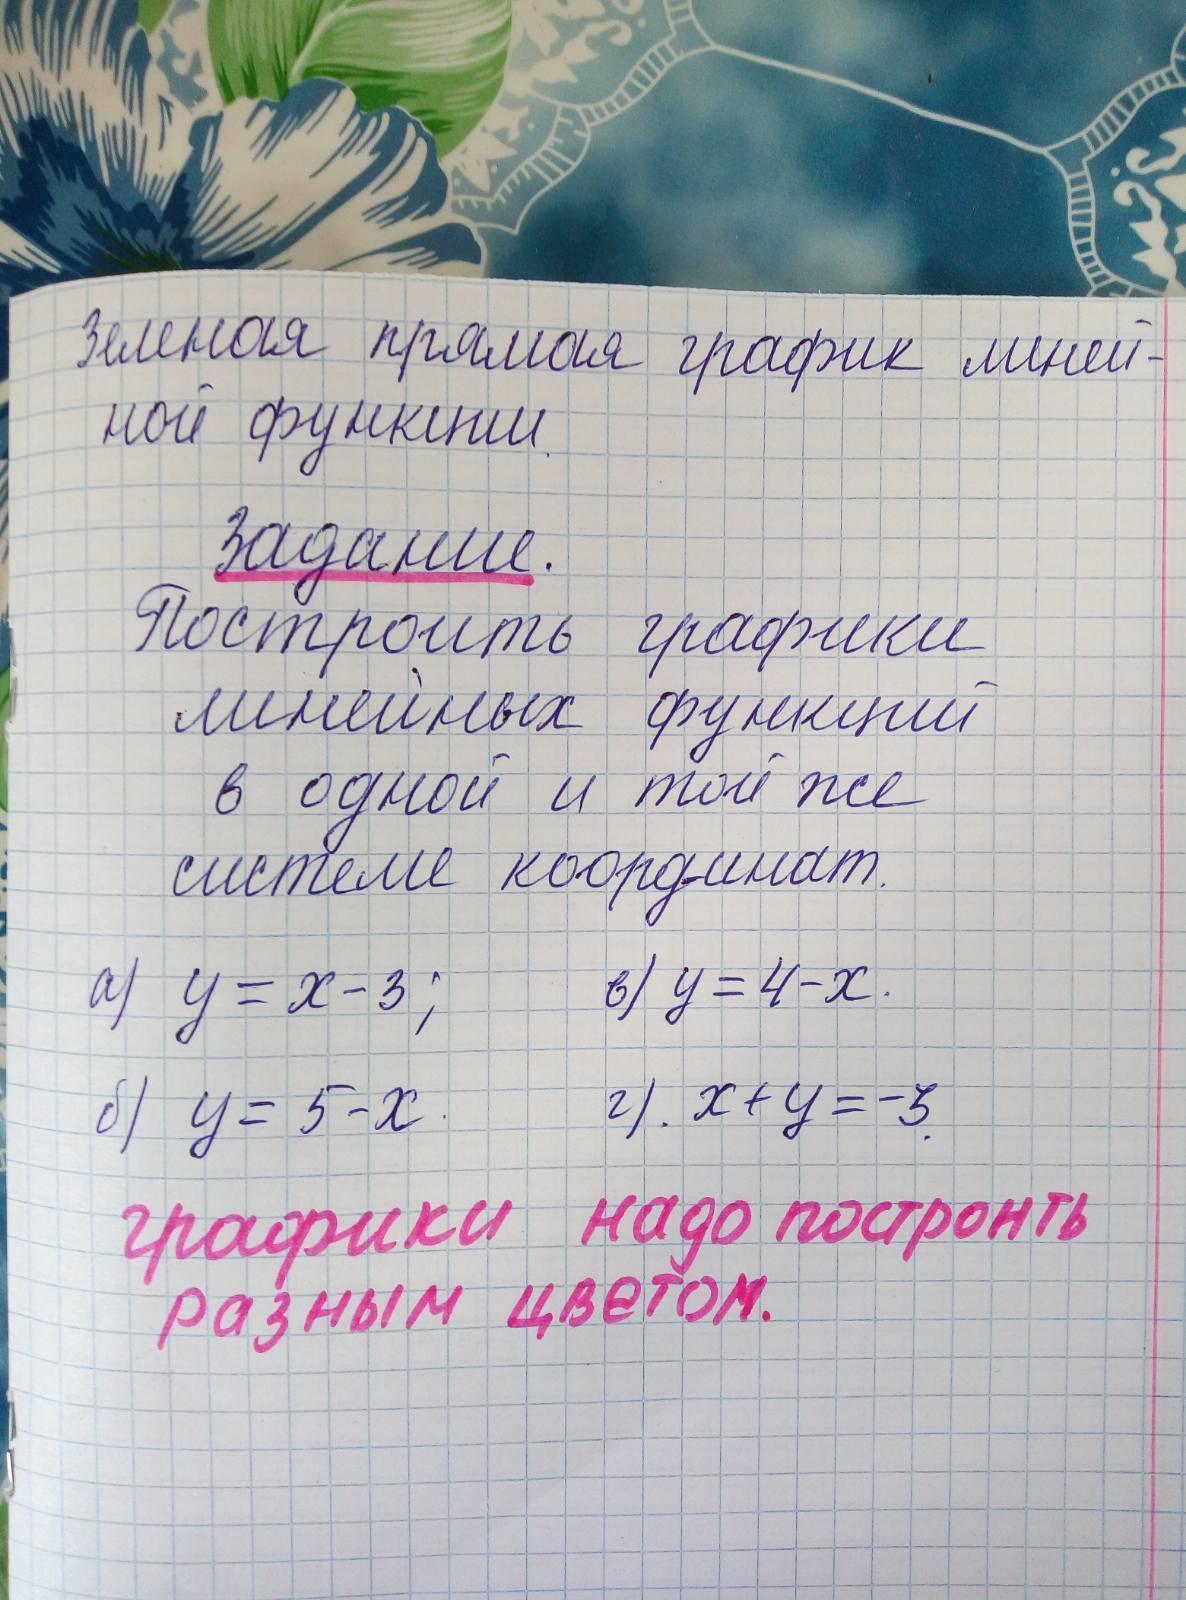 Зеленая прямая график линей-
ной функции.
Задание.
Построить графики
линейных функций
в одной и той же
системе координат.
а) y = x - 3; в) y = 4 - x.
б) y = 5 - x. г). x + y = -3.
графики надо построить
разным цветом.